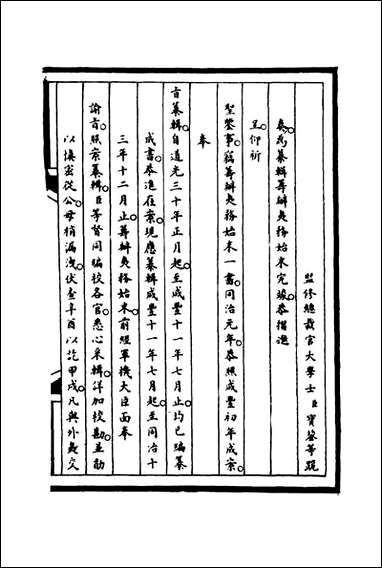 監修總裁官大學士臣寶鋆等跪
奏為纂輯籌辦夷務始末完竣恭摺進
呈仰祈
聖鑒事竊籌辦夷務始末一書同治元年恭照咸豐初年成案
奉
旨纂輯自道光三十年正月起至咸豐十一年七月止均已編纂
成書恭進在案現應纂輯咸豐十一年七月起至同治十
三年十二月止籌辦夷務始末前經軍機大臣面奉
諭旨照案纂輯臣等督同編校各官悉心采輯詳加校勘並飭
以慎密從公毋稍漏洩伏查辛酉以訖甲戌凡與外夷交